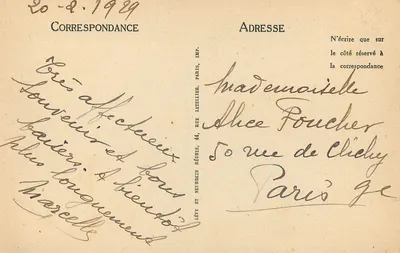 20-2-1929
CORRESPONDANCE
Très affectueux
souvenir et bons
baisers et bientôt
plus longuement
Marcelle
LÉVY ET NEURDEIN RÉUNIS, 44, RUE LETELLIER, PARIS, IMP.
ADRESSE
N'écrire que sur
le côté réservé à
la correspondance
Mademoiselle
Alice Foucher
50 rue de Clichy
Paris 9e